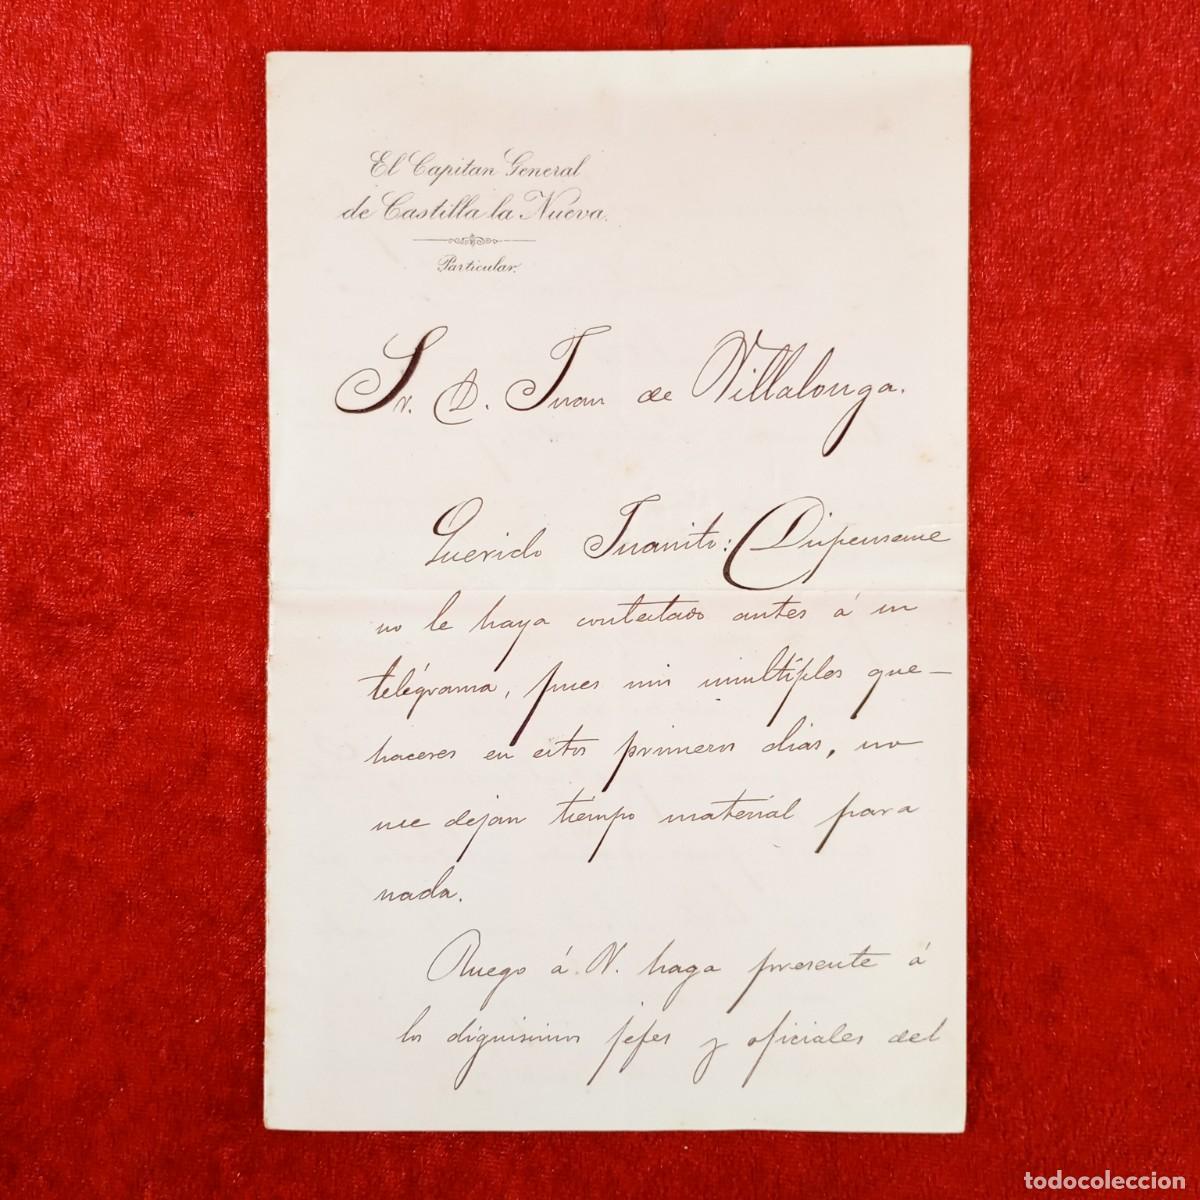 El Capitan General
de Castilla la Nueva.
Particular.
Sr. D. Juan de Villalonga.
Querido Juanito: Dispenseme
no le haya contestado antes á su
telégrama, pues mis multíples que-
haceres en estos primeros dias, no
me dejan tiempo material para
nada.
Ruego á V. haga presente á
los dignisimos jefes y oficiales del
todocoleccion